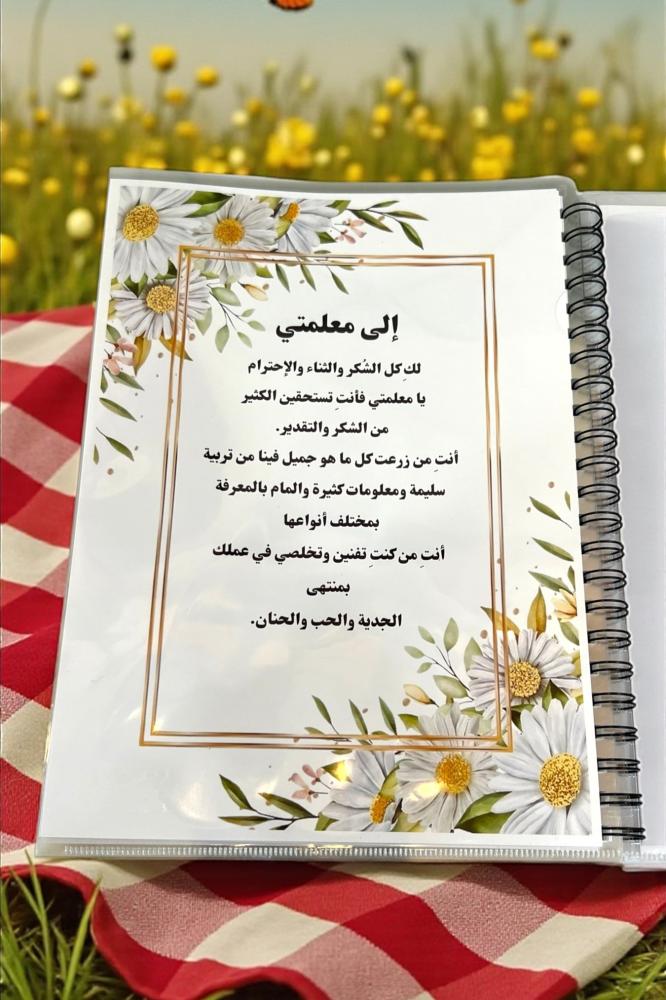 إلى معلمتي
لكِ كل الشكر والثناء والإحترام
يا معلمتي فأنتِ تستحقين الكثير
من الشكر والتقدير.
أنتِ من زرعت كل ما هو جميل فينا من تربية
سليمة ومعلومات كثيرة والمام بالمعرفة
بمختلف أنواعها
أنتِ من كنتِ تفنين وتخلصي في عملك
بمنتهى
الجدية والحب والحنان.